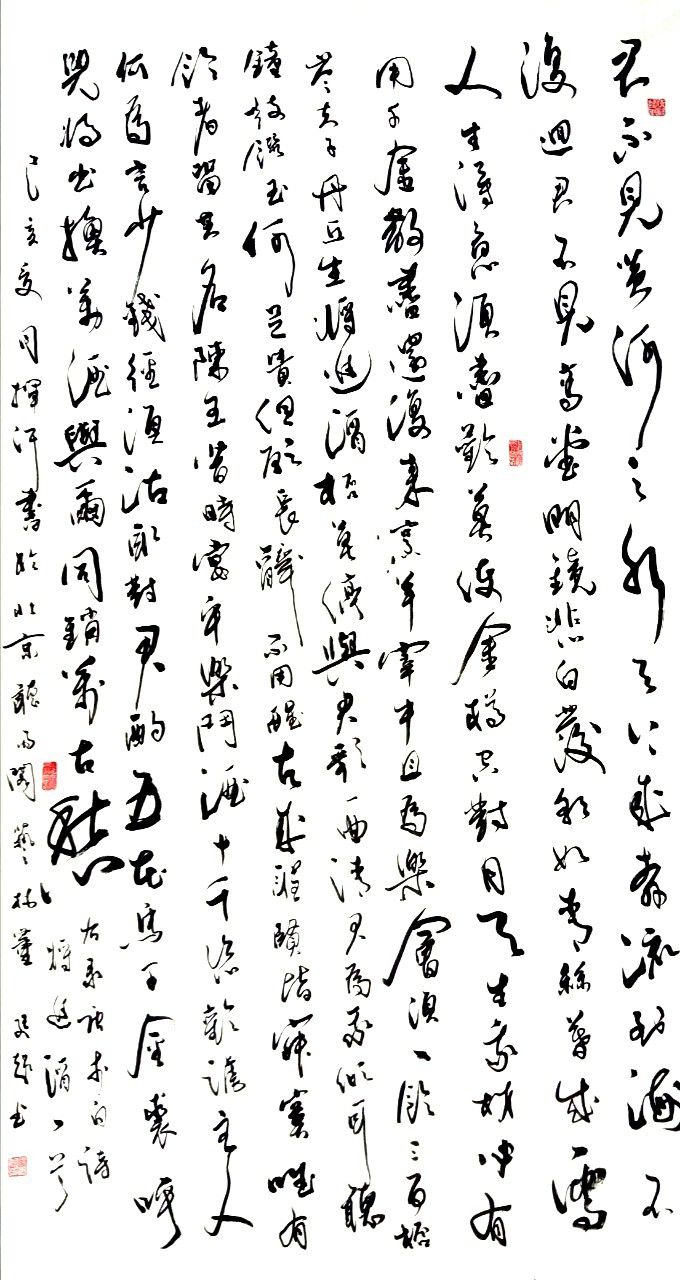 君不見黃河之水天上來奔流到海不
復迴君不見高堂明鏡悲白髮朝如青絲暮成雪
人生得意須盡歡莫使金樽空對月天生我材必有
用千金散盡還復來烹羊宰牛且為樂會須一飲三百杯
岑夫子丹丘生將進酒杯莫停與君歌一曲請君為我傾耳聽
鐘鼓饌玉何足貴但願長醉不用醒古來聖賢皆寂寞唯有
飲者留其名陳王昔時宴平樂鬥酒十千恣歡謔主人
何為言少錢徑須沽取對君酌五花馬千金裘呼
兒將出換美酒與爾同銷萬古愁
右錄李白詩
將進酒一首
己亥夏月揮汗書於北京聽雨閣藝林董超書